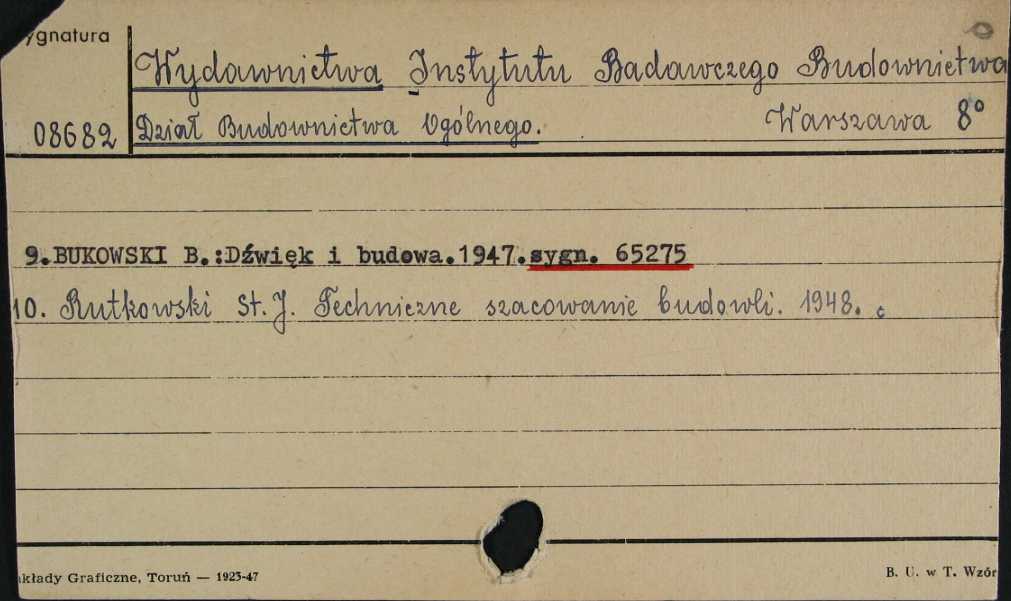 ygnatura
Wydawnictwa Instytutu Badawczego Budownictwa
08682 Dział Budownictwa Ogólnego. Warszawa 8°
9.BUKOWSKI B.:Dźwięk i budowa.1947.sygn. 65275
10. Rutkowski St. J. Techniczne szacowanie budowli. 1948. c
kłady Graficzne, Toruń — 1923-47
B. U. w T. Wzór